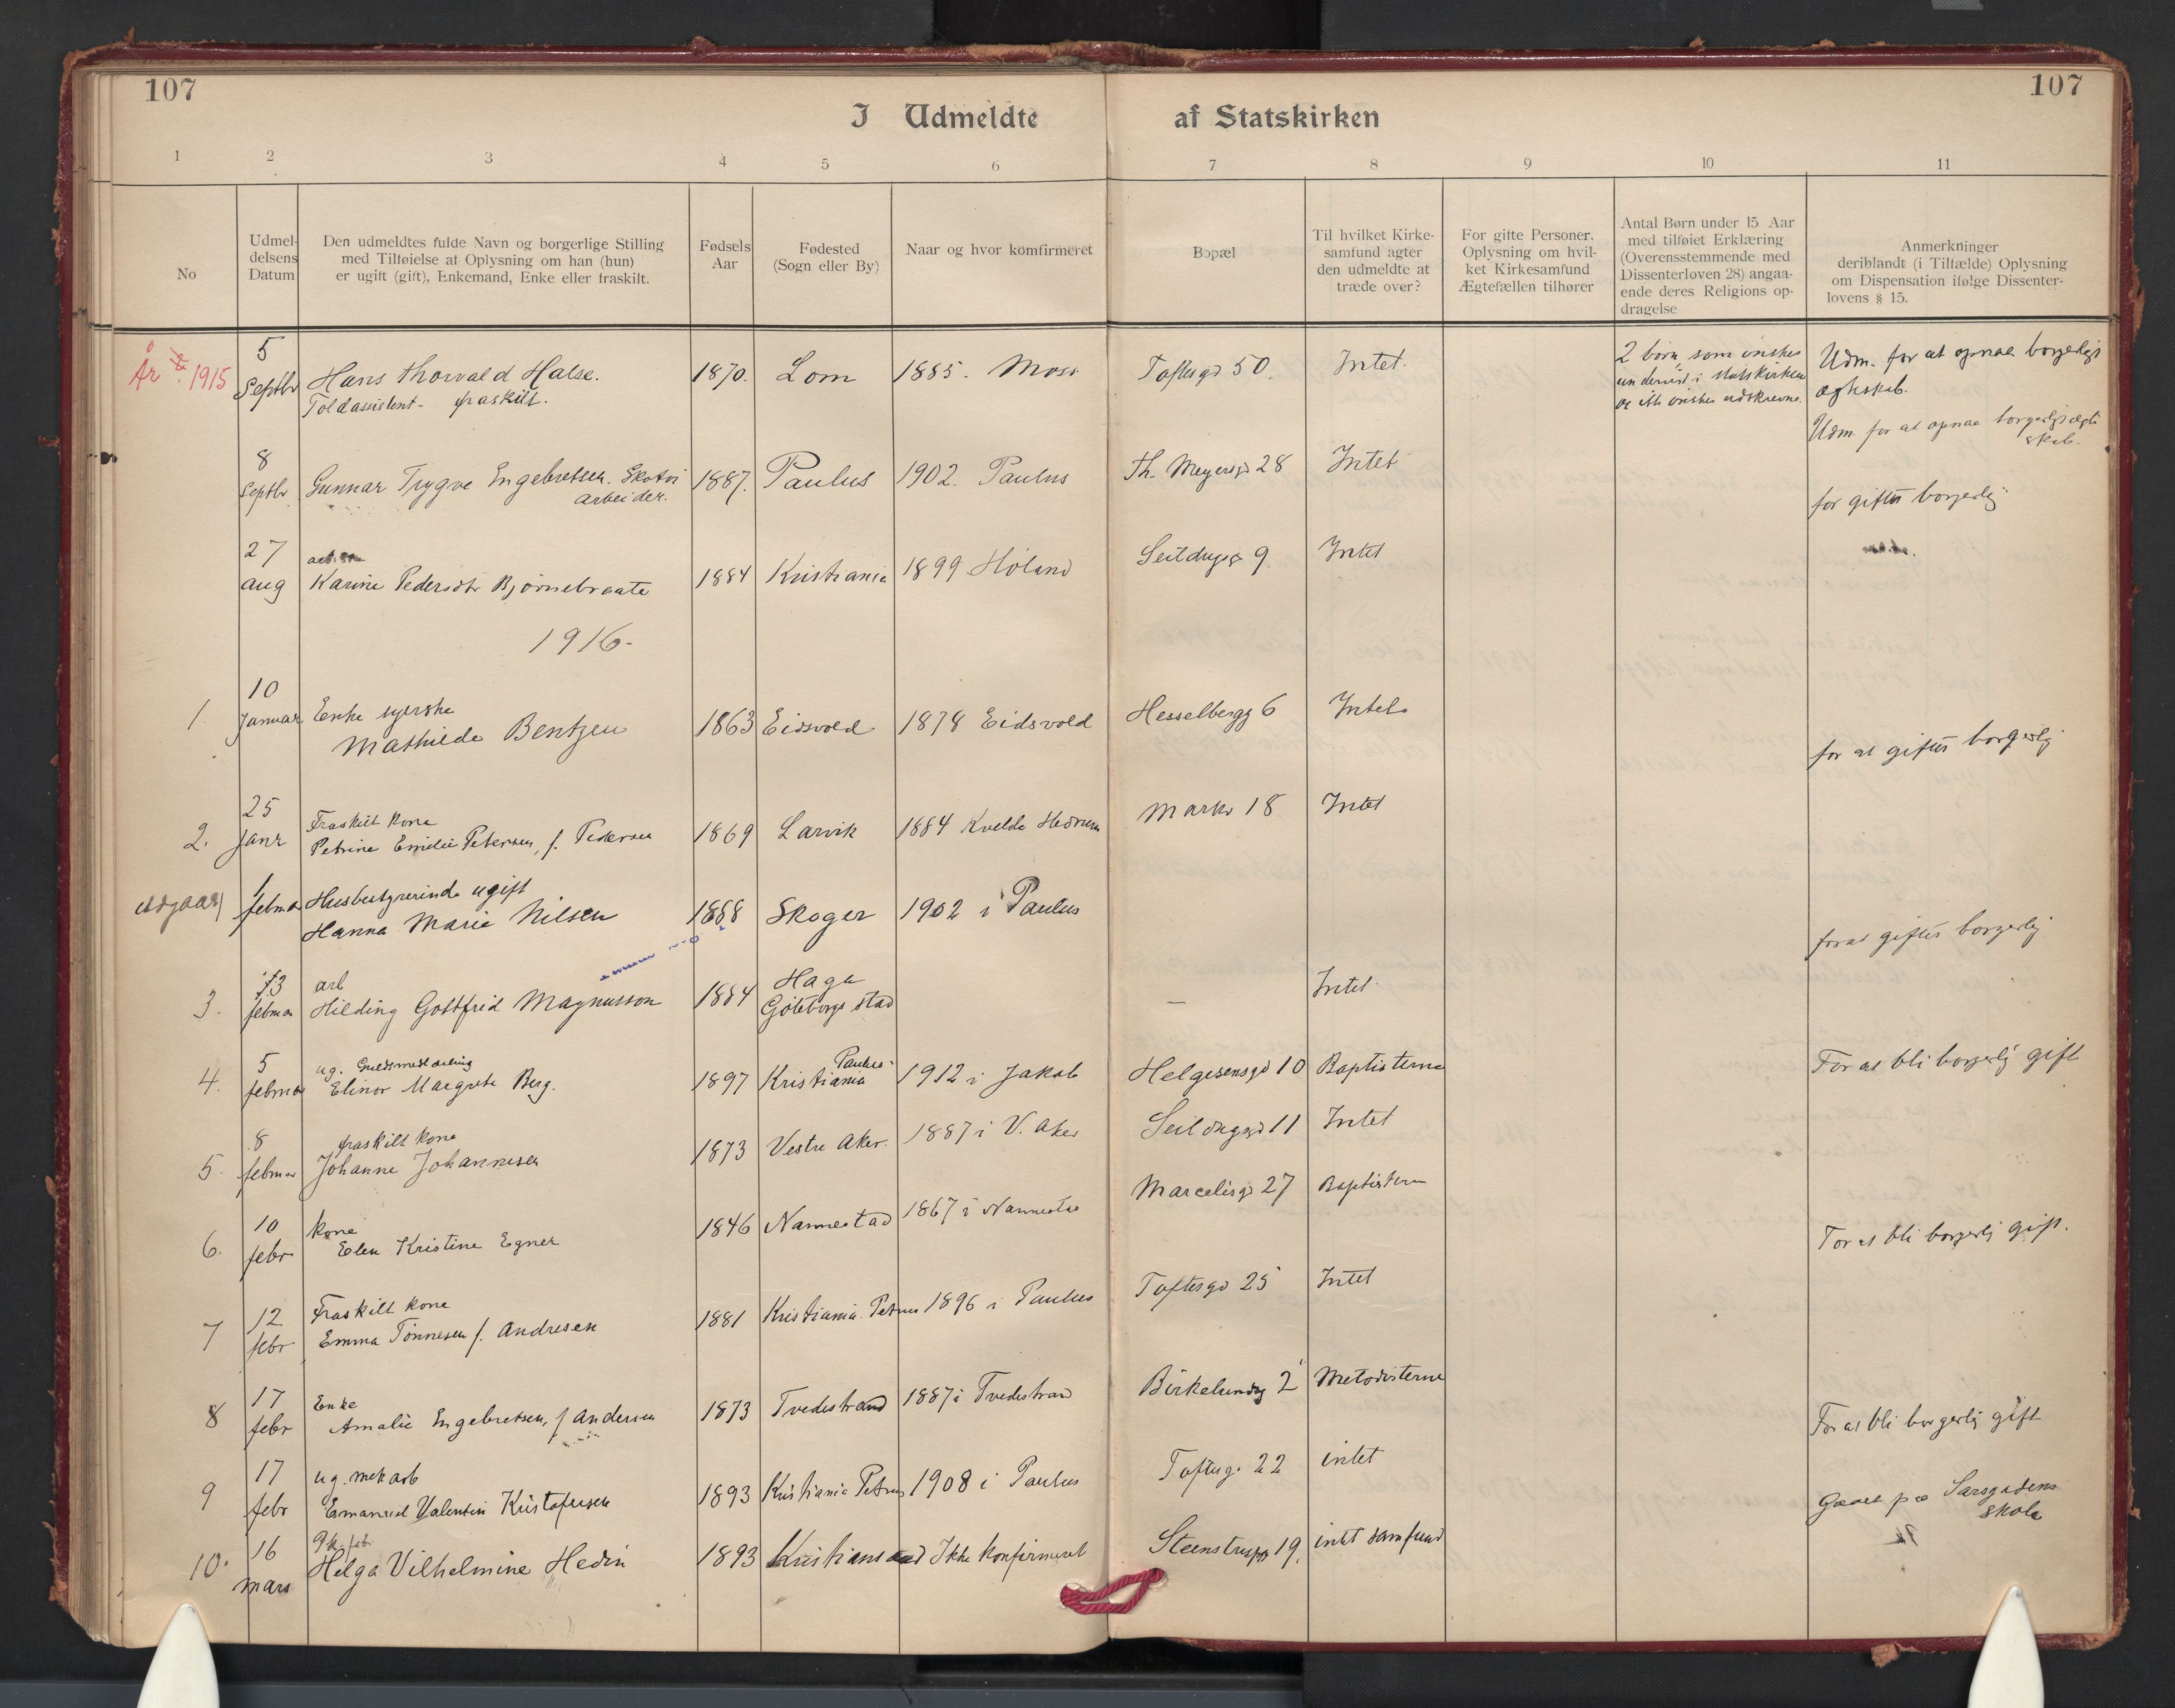 107
107
I Udmeldte af Statskirken
1 2 3 4 5 6 7 8 9 10 11
No
Udmel-
delsens
Datum
Den udmeldtes fulde Navn og borgerlige Stilling
med Tilføielse af Oplysning om han (hun)
er ugift (gift), Enkemand, Enke eller fraskilt.
Fødsels
Aar
Fødested
(Sogn eller By)
Naar og hvor komfirmeret
Bopæl
Til hvilket Kirke-
samfund agter
den udmeldte at
træde over?
For gifte Personer.
Oplysning om hvil-
ket Kirkesamfund
Ægtefællen tilhører
Antal Børn under 15 Aar
med tilføiet Erklæring
(Overensstemmende med
Dissenterloven 28) angaa-
ende deres Religions op-
dragelse
Anmerkninger
deriblandt (i Tilfælde) Oplysning
om Dispensation ifølge Dissenter-
lovens § 15.
År 1915
5
Septbr Hans Thorvald Halse. 1870. Lom 1885. Moss Toftesgd 50. Intet.
Toldassistent - fraskilt.
2 børn som ønskes
undervist i statskirken
og ikke ønskes udskrevne.
Udm. for at opnaa borgerligt
ægteskab.
Udm. for at opnaa borgerligt ægte
skab.
8
Septbr Gunnar Trygve Engebretsen. Skotøi 1887. Paulus 1902. Paulus Th. Meyersgd 28 Intet
arbeider.
for giftes borgerlig
27
aug Karine Pedersdtr Bjørnebraate 1884 Kristiania 1899 Høland Seildugsg 9. Intet
1916-
10
1. Januar Enke syerske
Mathilde Bentzen 1863 Eidsvold 1878 Eidsvold Hesselbergg 6 Intet
for at giftes borgerlig
25
2. Janr Fraskilt kone
Petrine Emilie Petersen, f. Pedersen 1869 Larvik 1884 Kvelde Hedrum Markv 18 Intet
1
udgaar februar Husbestyrerinde ugift
Hanna Marie Nilsen 1888 Skoger 1902 i Paulus
for at giftes borgerlig
3. februar arb
Hilding Gottfrid Magnusson 1884 Haga
Göteborgs stad — Intet
5
4. februar ug. Guldsmedarbeing
Elinor Margrete Berg. 1897 Kristiania Paulus 1912 i Jakob Helgesensgd 10 Baptisterne
For at bli borgerlig gift
8
5. februar fraskilt kone
Johanne Johannesen 1873 Vestre Aker. 1887 i V. Aker Seildugsgd 11 Intet
10
6. febr kone
Elen Kristine Egner 1846 Nannestad 1867 i Nannestad Marcelisgd 27 Baptistern
For at bli borgerlig gift.
12
7 febr Fraskilt kone
Emma Tønnesen f. Andresen 1881 Kristiania Petrus 1896 i Paulus Toftesgd 25 Intet
17
8 febr Enke
Amalie Engebretsen, f Andersen 1873 Tvedestrand 1887 i Tvedestrand Birkelundg 2 Metodisterne
For at bli borgerlig gift
17
9 febr ug. mek arb
Emanuel Valentin Kristofersen 1893 Kristiania Petrus 1908 i Paulus Toftesg. 22 intet
Gaaet paa Sarsgadens
skole
16
10. mars
Helga Vilhelmine Hedin 1893 Kristiansand Ikke konfirmeret Steenstrupsg 19. intet samfund